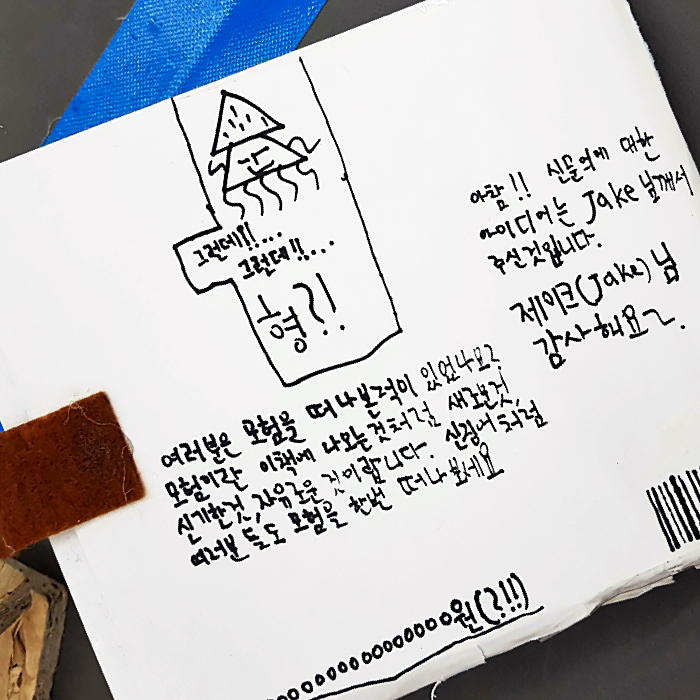 그런데!!...
그런데!!...
형?!
아참!! 신물역에 대한
아이디어는 Jake님께서
주신것입니다.
제이크(Jake)님
감사해요~.
여러분은 모험을 떠나본적이 있었나요?
모험이란 이책에 나오는것처럼 새로운것,
신기한것, 자유로운 것이랍니다. 신검어처럼
여러분들도 모험을 한번 떠나보세요
ooooooooooooooo원(?!!)